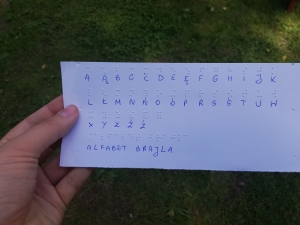 A Ą B C Ć D E Ę F G H I J K
L Ł M N Ń O Ó P R S Ś T U W
X Y Z Ź Ż
ALFABET BRAJLA